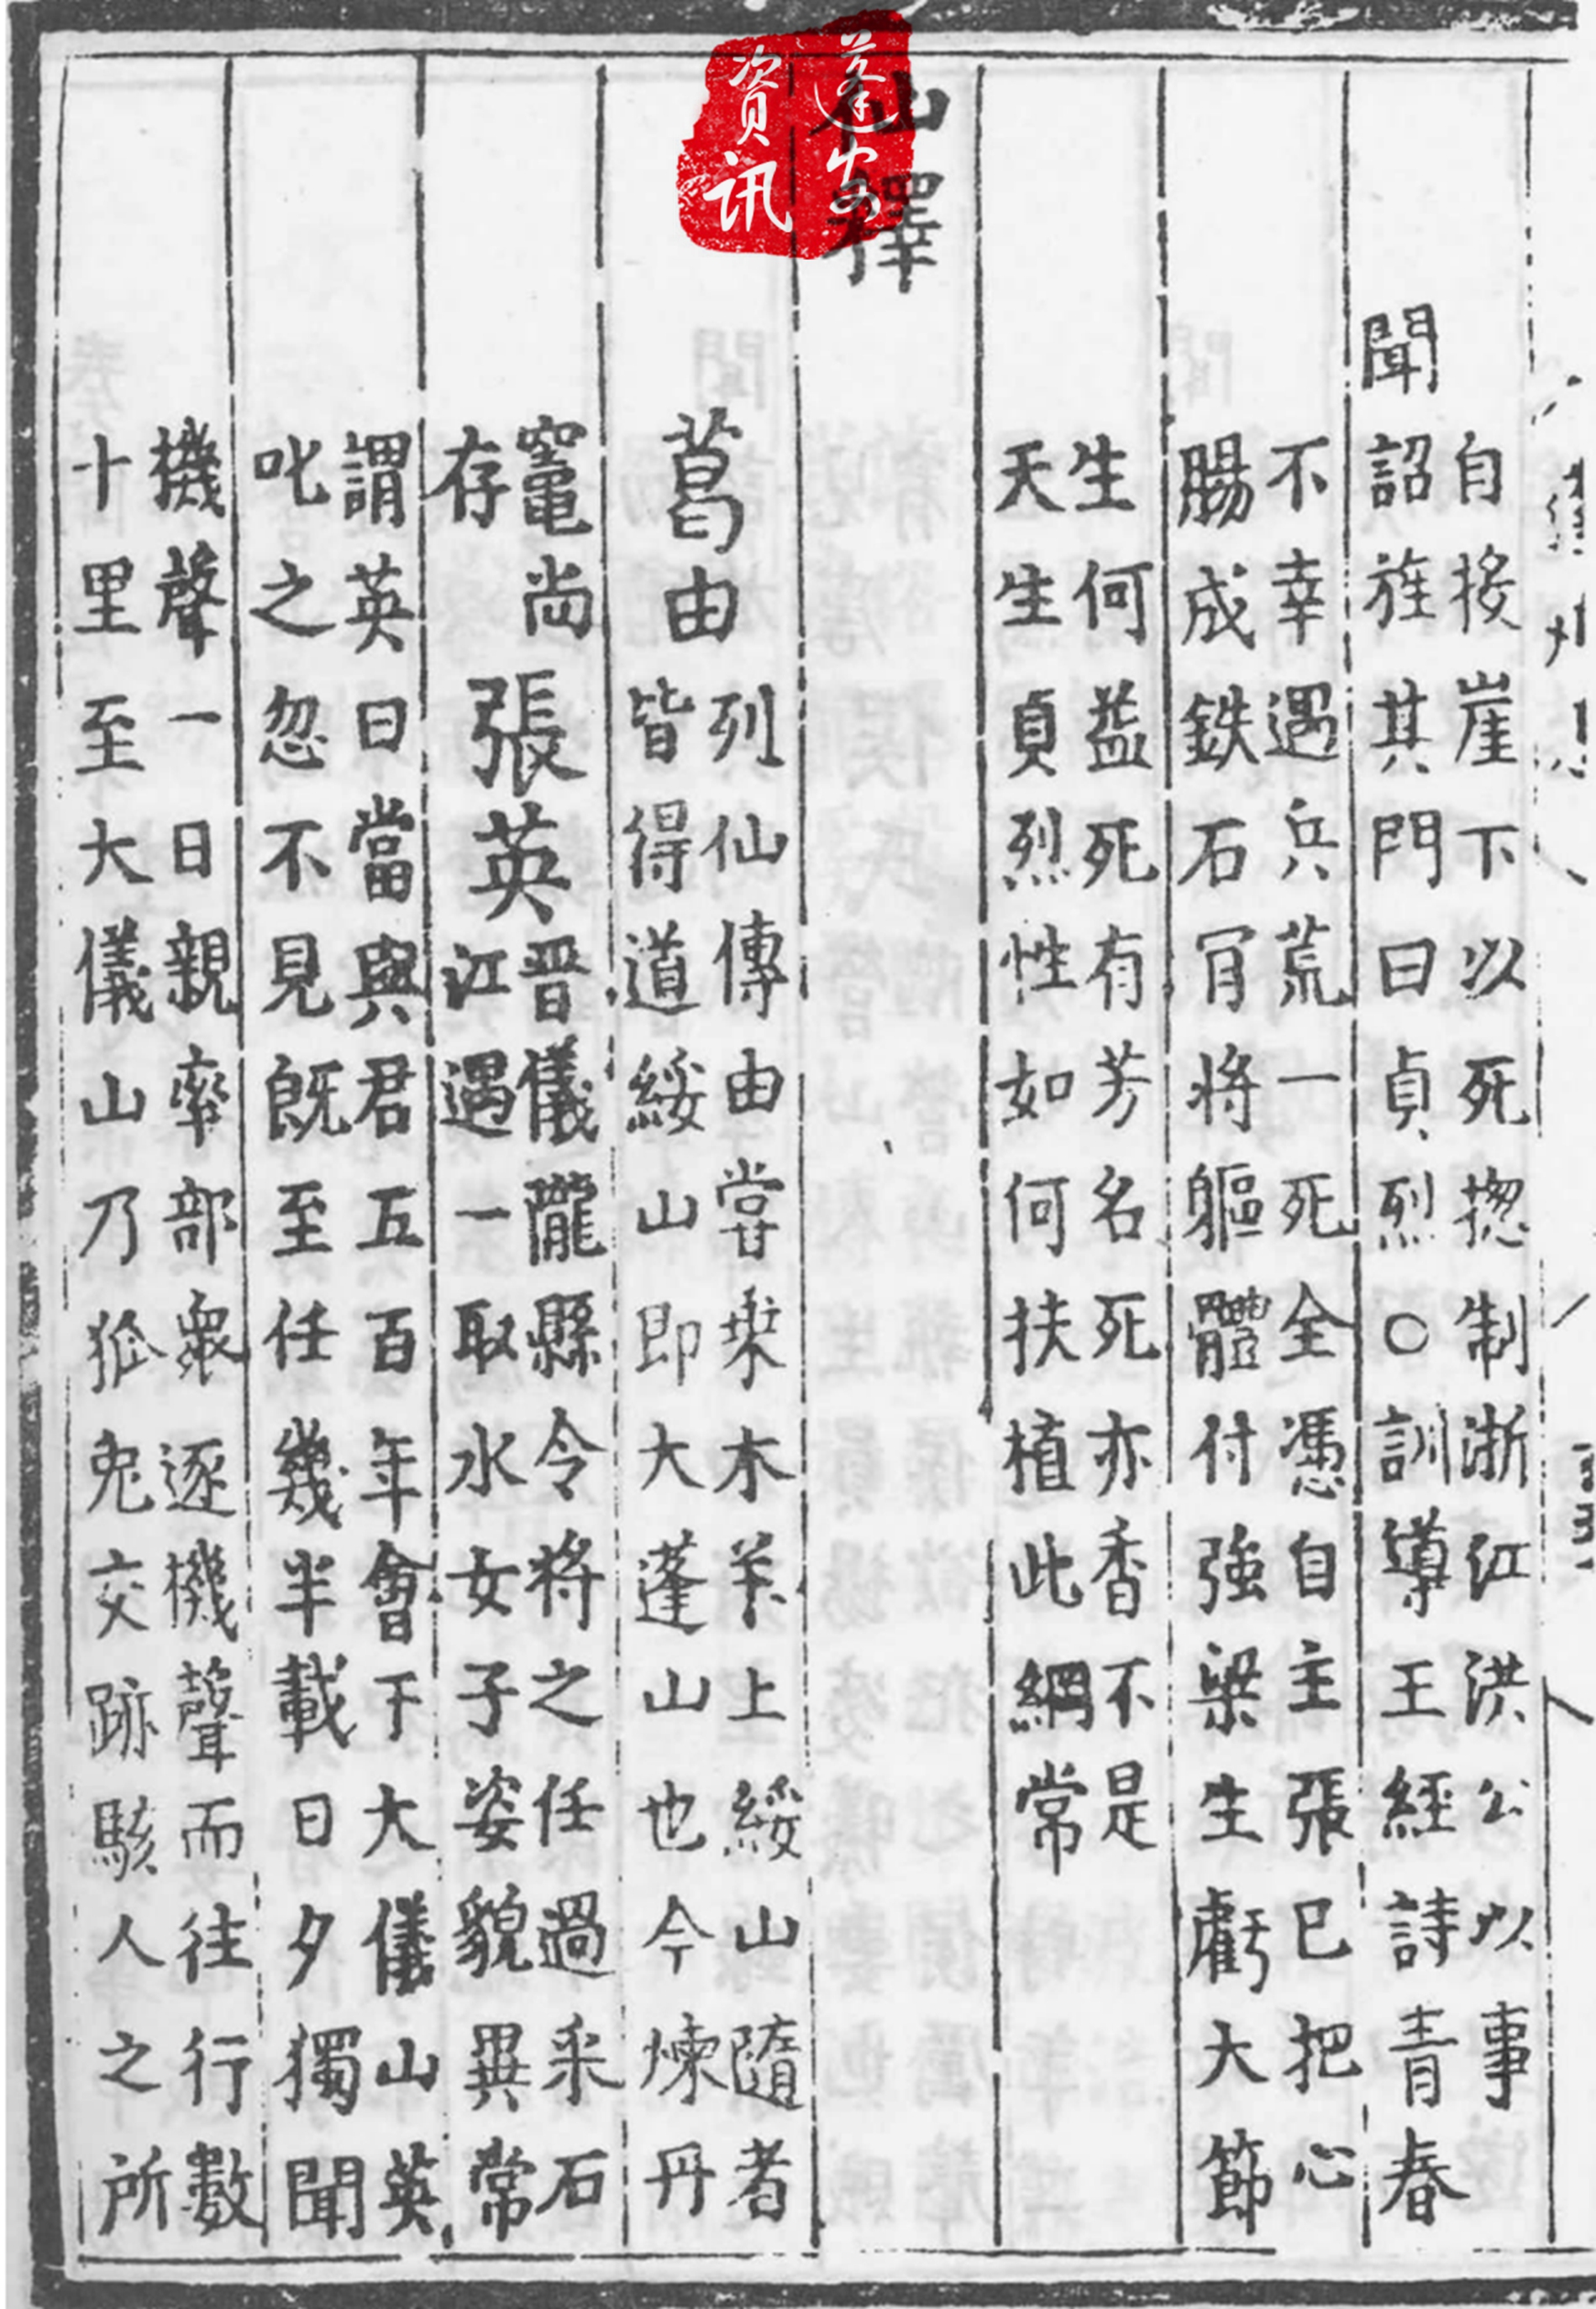 自接崖下以死揔制浙江洪公以事
聞
詔旌其門曰貞烈○訓導王經詩青春
不幸遇兵荒一死全憑自主張已把心
腸成鉄石肎將軀體付強梁生虧大節
生何益死有芳名死亦香不是
天生貞烈性如何扶植此綱常
仙釋
葛由
列仙傳由嘗乗木羊上綏山隨者
皆得道綏山即大蓬山也今煉丹
竈尚
存
張英
晋儀隴縣令將之任過采石
江遇一取水女子姿貌異常
謂英曰當與君五百年會于大儀山英
叱之忽不見既至任幾半載日夕獨聞
機聲一日親率部衆逐機聲而往行數
十里至大儀山乃狐兎交跡駭人之所
蓬安
資讯